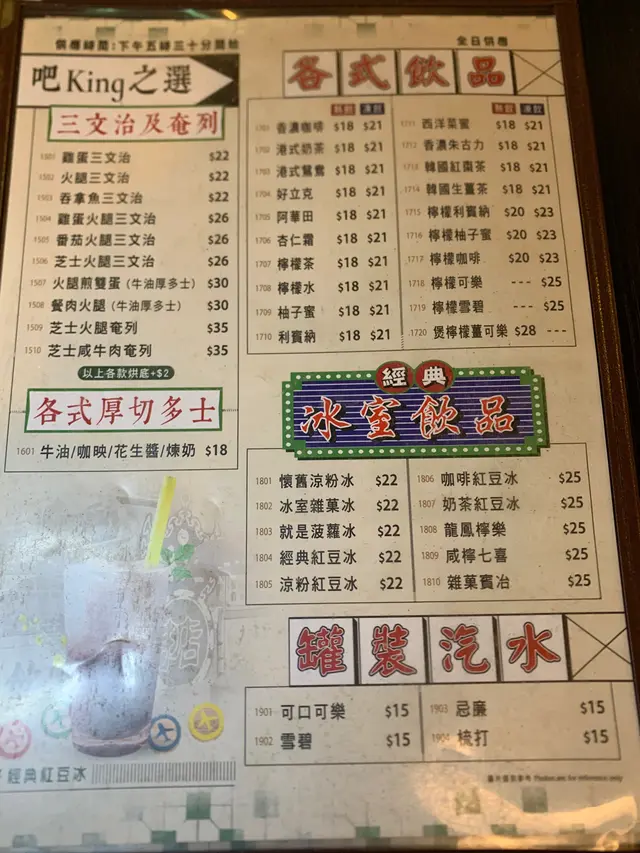 供應時間:下午五時三十分開始
吧King之選
三文治及奄列
1501 雞蛋三文治 $22
1502 火腿三文治 $22
1503 吞拿魚三文治 $22
1504 雞蛋火腿三文治 $26
1505 番茄火腿三文治 $26
1506 芝士火腿三文治 $26
1507 火腿煎雙蛋 (牛油厚多士) $30
1508 餐肉火腿 (牛油厚多士) $30
1509 芝士火腿奄列 $35
1510 芝士咸牛肉奄列 $35
以上各款烘底+$2
各式厚切多士
1601 牛油/咖映/花生醬/煉奶 $18
經典紅豆冰
全日供應
各式飲品
熱飲 凍飲
1701 香濃咖啡 $18 $21
1702 港式奶茶 $18 $21
1703 港式鴛鴦 $18 $21
1704 好立克 $18 $21
1705 阿華田 $18 $21
1706 杏仁霜 $18 $21
1707 檸檬茶 $18 $21
1708 檸檬水 $18 $21
1709 柚子蜜 $18 $21
1710 利賓納 $18 $21
熱飲 凍飲
1711 西洋菜蜜 $18 $21
1712 香濃朱古力 $18 $21
1713 韓國紅棗茶 $18 $21
1714 韓國生薑茶 $18 $21
1715 檸檬利賓納 $20 $23
1716 檸檬柚子蜜 $20 $23
1717 檸檬咖啡 $20 $23
1718 檸檬可樂 --- $25
1719 檸檬雪碧 --- $25
1720 煲檸檬薑可樂 $28 ---
經典
冰室飲品
1801 懷舊涼粉冰 $22
1802 冰室雜菓冰 $22
1803 就是菠蘿冰 $22
1804 經典紅豆冰 $22
1805 涼粉紅豆冰 $22
1806 咖啡紅豆冰 $25
1807 奶茶紅豆冰 $25
1808 龍鳳檸樂 $25
1809 咸檸七喜 $25
1810 雜菓賓治 $25
罐裝汽水
1901 可口可樂 $15
1902 雪碧 $15
1903 忌廉 $15
1904 梳打 $15
圖片僅供參考 Photos are for reference only